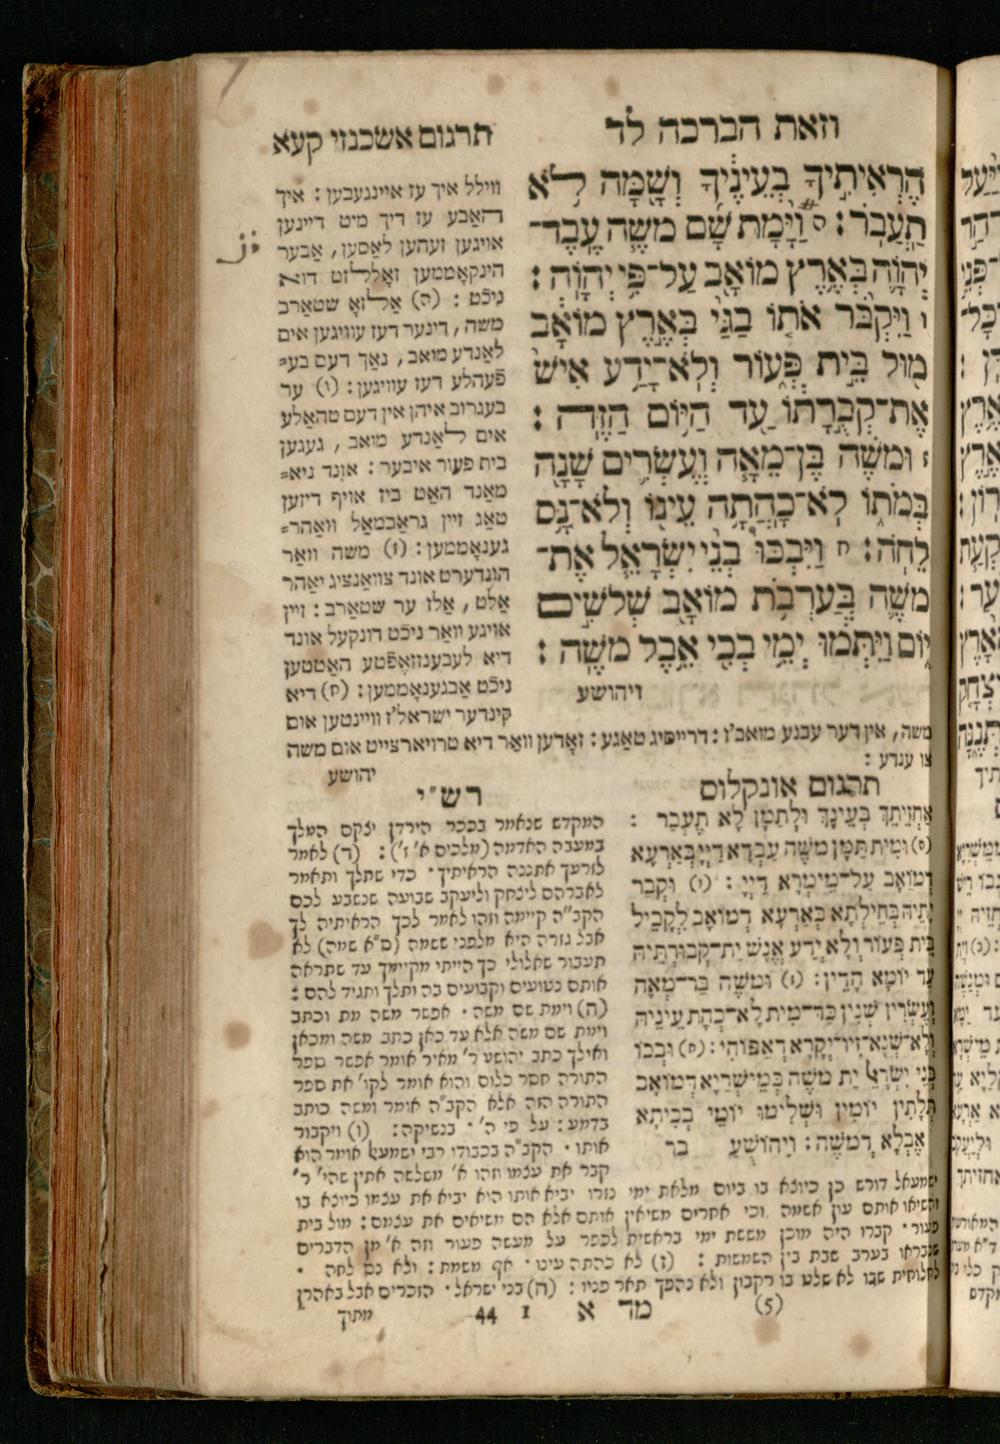 וזאת הברכה לד
תרגום אשכנזי קעא
הֶרְאִיתִ֣יךָ בְעֵינֶ֔יךָ וְשָׁ֖מָּה לֹ֥א
תַעֲבֹֽר׃ ס וַיָּ֨מָת שָׁ֜ם מֹשֶׁ֧ה עֶֽבֶד־
יְהוָ֛ה בְּאֶ֥רֶץ מוֹאָ֖ב עַל־פִּ֥י יְהוָֽה׃
ו וַיִּקְבֹּ֨ר אֹת֤וֹ בַגַּי֙ בְּאֶ֣רֶץ מוֹאָ֔ב
מ֖וּל בֵּ֣ית פְּע֑וֹר וְלֹֽא־יָדַ֥ע אִישׁ֙
אֶת־קְבֻ֣רָת֔וֹ עַ֖ד הַיּ֥וֹם הַזֶּֽה׃
ז וּמֹשֶׁ֗ה בֶּן־מֵאָ֧ה וְעֶשְׂרִ֛ים שָׁנָ֖ה
בְּמֹת֑וֹ לֹֽא־כָהֲתָ֥ה עֵינ֖וֹ וְלֹא־נָ֥ס
לֵחֹֽה׃ ח וַיִּבְכּוּ֩ בְנֵ֨י יִשְׂרָאֵ֧ל אֶת־
מֹשֶׁ֛ה בְּעַֽרְבֹ֥ת מוֹאָ֖ב שְׁלֹשִׁ֣ים
י֑וֹם וַֽיִּתְּמ֔וּ יְמֵ֥י בְכִ֖י אֵ֥בֶל מֹשֶֽׁה׃
ויהושע
ווילל איך עז איינגעבען : איך
האבע עז דיך מיט דיינען
אויגען זעהען לאסען, אבער
הינקאממען זאללזט דוא
ניכט : (ה) אלזא שטארב
משה, דינער דעז עוויגען אים
לאנדע מואב, נאך דעם בע=
פעהלע דעז עוויגען : (ו) ער
בעגרוב איהן אין דעם טהאלע
אים לאנדע מואב, געגען
בית פעור איבער : אונד ניא=
מאנד האט ביז אויף דיזען
טאג זיין גראבמאל וואהר=
גענאממען : (ז) משה וואר
הונדערט אונד צוואנציג יאהר
אלט, אלז ער שטארב : זיין
אויגע וואר ניכט דונקעל אונד
דיא לעבענזזאפטע האטטען
ניכט אבגענאממען : (ח) דיא
קינדער ישראל'ז וויינטען אום
משה, אין דער עבנע מואב'ז : דרייסיג טאגע : זאדען וואר דיא טרויארצייט אום משה
צו ענדע :
יהושע
תרגום אונקלוס
אַחֲזִיתָךְ בְּעֵינָךְ וּלְתַמָּן לָא תֶעְבַּר :
(ה) וּמִית תַּמָּן מֹשֶׁה עַבְדָּא דַיְיָ בְּאַרְעָא
דְמוֹאָב עַל־מֵימְרָא דַיְיָ : (ו) וּקְבַר
יָתֵיהּ בְּחֵילְתָא בְּאַרְעָא דְמוֹאָב לָקֳבֵיל
בֵּית פְּעוֹר וְלָא יְדַע אֱנָשׁ יַת־קְבוּרְתֵּיהּ
עַד יוֹמָא הָדֵין : (ז) וּמֹשֶׁה בַּר־מְאָה
וְעֶשְׂרִין שְׁנִין כַּד־מִית לָא־כְהַת עֵינֵיהּ
וְלָא־שְׁנָא־זִיו־יְקָרָא דְאַפּוֹהִי : (ח) וּבְכוֹ
בְּנֵי יִשְׂרָאֵל יַת מֹשֶׁה בְּמֵישְׁרַיָּא דְמוֹאָב
תְּלָתִין יוֹמִין וּשְׁלִימוּ יוֹמֵי בְּכִיתָא
אֶבְלָא דְמֹשֶׁה : וִיהוֹשֻׁעַ בר
רש"י
המקדש שנאמר בככר הירדן יצקם המלך
במעבה האדמה (מלכים א' ז') : (ד) לאמר
לזרעך אתננה הראיתיך ּ כדי שתלך ותאמר
לאברהם ליצחק וליעקב שבועה שנשבע לכם
הקב"ה קיימה וזהו לאמר לכך הראיתיה לך
אבל גזרה היא מלפני ששמה (ס"א שמה) לא
תעבור שאלולי כך הייתי מקיימך עד שתראה
אותם נטועים וקבועים בה ותלך ותגיד להם :
(ה) וימת שם משה ּ אפשר משה מת וכתב
וימת שם משה אלא עד כאן כתב משה ומכאן
ואילך כתב יהושע ר' מאיר אומר אפשר ספר
התורה חסר כלום והוא אומר לקו' את ספר
התורה הזה אלא הקב"ה אומר ומשה כותב
בדמע : על פי ה' ּ בנשיקה : (ו) ויקבור
אותו ּ הקב"ה בכבודו רבי ישמעאל אומר הוא
קבר את עצמו וזהו א' משלשה אתין שהי' ר'
ישמעאל דורש כן כיוצא בו ביום מלאת ימי נזרו יביא אותו הוא יביא את עצמו כיוצא בו
והשיאו אותם עון אשמה וכי אחרים משיאין אותם אלא הם משיאים את עצמם : מול בית
פעור ּ קברו היה מוכן מששת ימי בראשית לכפר על מעשה פעור וזה א' מן הדברים
שנבראו בערב שבת בין השמשות : (ז) לא כהתה עינו ּ אף משמת : ולא נס לחה ּ
לחלוחית שבו לא שלט בו רקבון ולא נהפך תאר פניו : (ח) בני ישראל ּ הזכרים אבל באהרן
(5) מד א 1 44 מתוך